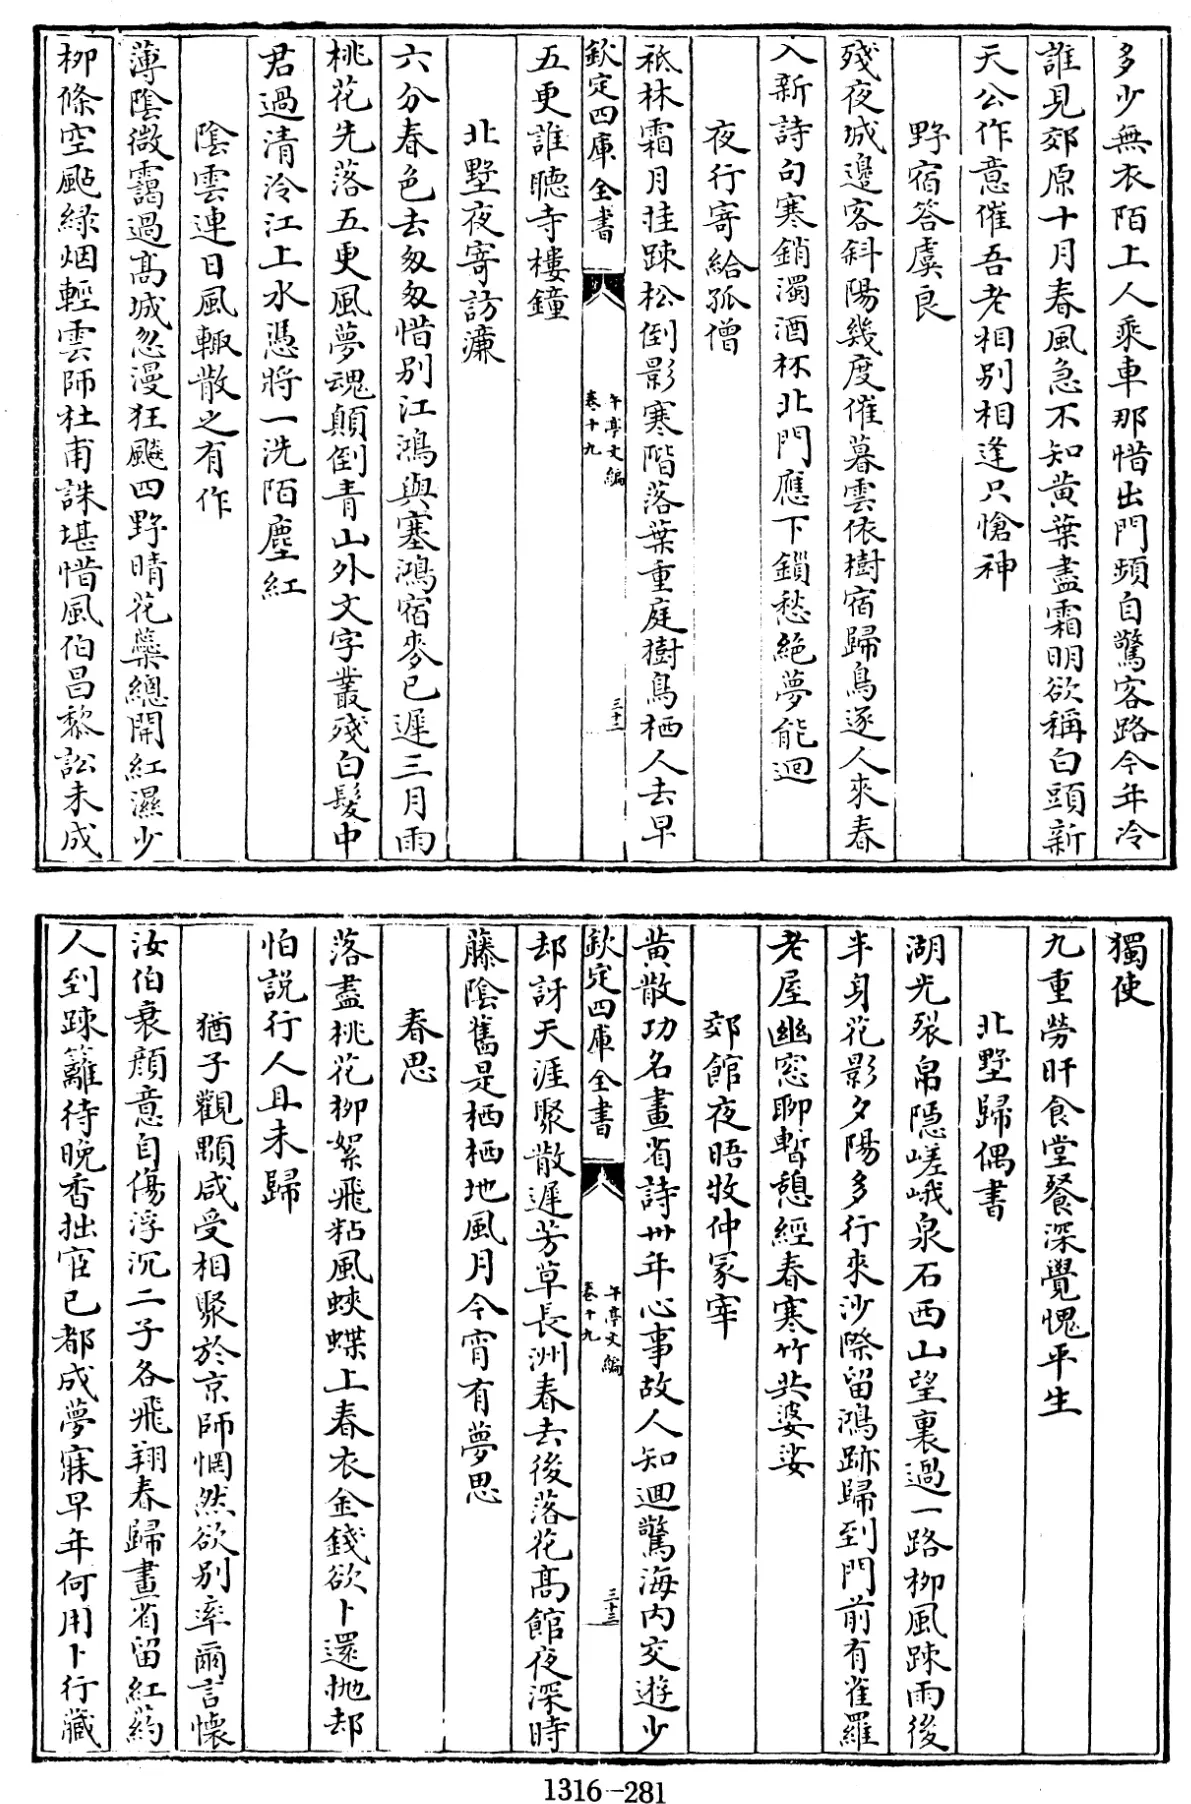 多少無衣陌上人乘車那惜出門頻自驚客路今年冷
誰見郊原十月春風急不知黄葉盡霜明欲稱白頭新
天公作意催吾老相别相逢只愴神
野宿答虞良
殘夜城邊客斜陽幾度催暮雲依樹宿歸鳥逐人來春
入新詩句寒銷濁酒杯北門應下鎖愁絶夢能迴
夜行寄給孤僧
祗林霜月挂踈松倒影寒階落葉重庭樹鳥栖人去早
欽定四庫全書
午亭文編
卷十九
三十二
五更誰聽寺樓鐘
北墅夜寄訪濂
六分春色去匆匆惜别江鴻與塞鴻宿麥已遲三月雨
桃花先落五更風夢魂顛倒青山外文字叢殘白髮中
君過清泠江上水憑將一洗陌塵紅
陰雲連日風輙散之有作
薄陰微靄過髙城忽漫狂飈四野晴花藥總開紅濕少
柳條空颭緑烟輕雲師杜甫誅堪惜風伯昌黎訟未成
獨使
九重勞旰食堂餐深覺愧平生
北墅歸偶書
湖光裂帛隠嵯峨泉石西山望裏過一路柳風踈雨後
半身花影夕陽多行來沙際留鴻跡歸到門前有雀羅
老屋幽窓聊暫憩經春寒竹共婆娑
郊館夜晤牧仲冡宰
黄散功名畫省詩卅年心事故人知迴驚海内交遊少
欽定四庫全書
午亭文編
卷十九
三十三
却訝天涯聚散遲芳草長洲春去後落花髙館夜深時
藤陰舊是栖栖地風月今宵有夢思
春思
落盡桃花柳絮飛粘風蛺蝶上春衣金錢欲卜還抛却
怕説行人且未歸
猶子觀顒咸受相聚於京師惘然欲别率爾言懷
汝伯衰顔意自傷浮沉二子各飛翔春歸畫省留紅葯
人到踈籬待晩香拙宦已都成夢寐早年何用卜行藏
1316-281